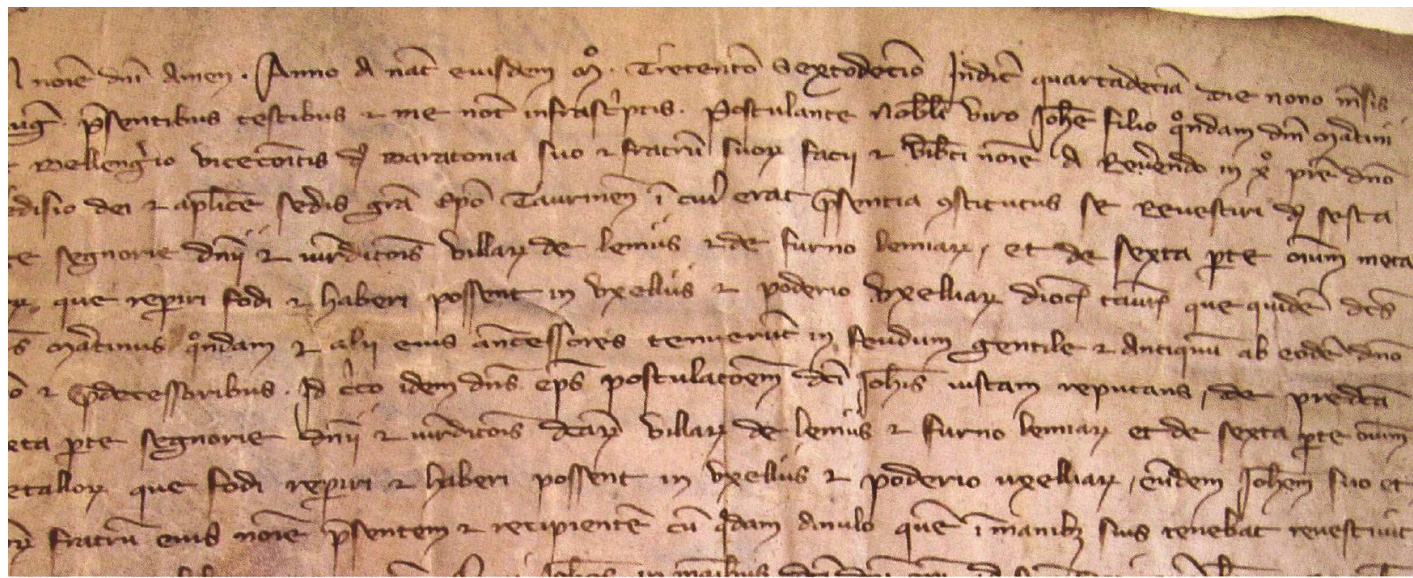 noīe dnī Amen. Anno a nat̄ eiusdem Mº. Trecentō Sextodecīo Indict̄ quartadecīa die nono m̄sis
auḡ. p̄sentibus testibus & me not̄ infrasc̄ptis. Postulante Nob̄li viro Joh̄e filio q̊ndam dnī Mar̄tini
& Bellenḡio vicecoītis d̄ Baratonia suo & fratrū suoꝝ facii & noīe a Reṽendo in xº pr̄e dnō
dei & ap̄lice sedis gr̄a ep̄o Taurineñ ī cuī erat p̄sentia ꝯstitutus se Revestiri d̄ sesta
te segnorie dn̄ii & iur̄diccōis villaꝝ de lemiis & de furno lemiaꝝ, et de sexta p̄te oīum meta
que reperiri fodi & haberi possent in vxelliis & poderio vxelliaꝝ dioc̄ taur̄ que quidem dc̄s
Mar̄tinus q̊ndam & alii eius ancessores tenuerūt in feudum gentile & antiquū ab eodē dnō
ō & p̄decessoribus. Id c̄co idem dn̄s ep̄s postulacōem dc̄i Joh̄is iustam reputans, de predc̄a
exta p̄te segnorie dn̄ii & iur̄diccōis dc̄aꝝ villaꝝ de lemiis & furno lemiaꝝ et de sexta p̄te oīum
etalloꝝ que fodi reperiri & haberi possent in vxelliis & poderio uxelliaꝝ, eūdem Joh̄em suo et
fratrū eius noīe p̄sentem & recipientē cū q̄dam anulo quē ī manibꝫ suis tenebat revestivit